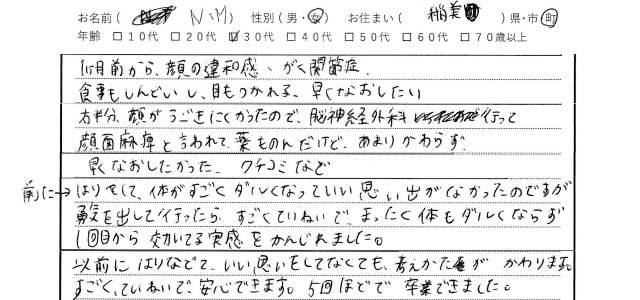 お名前( N.M ) 性別(男・女) お住まい( 稲美町 )県・市・町
年齢 □10代 □20代 ☑30代 □40代 □50代 □60代 □70歳以上
1ヶ月前から、顔の違和感、がく関節症。
食事もしんどいし、目もつかれる、早くなおしたい
右半分、顔がうごきにくかったので、脳神経外科 行って
顔面麻痺と言われて薬ものんだけど、あまりかわらず
早くなおしたかった、クチコミなど
前に→はりをして、体がすごくダルくなっていい思い出がなかったのですが
勇気を出して行ったら、すごくていねいで、まったく体もダルくならず
1回目から効いてる実感をかんじれました。
以前にはりなどで、いい思いをしてなくても、考えかたが かわります。
すごく、ていねいで、安心できます。5回ほどで卒業できました。